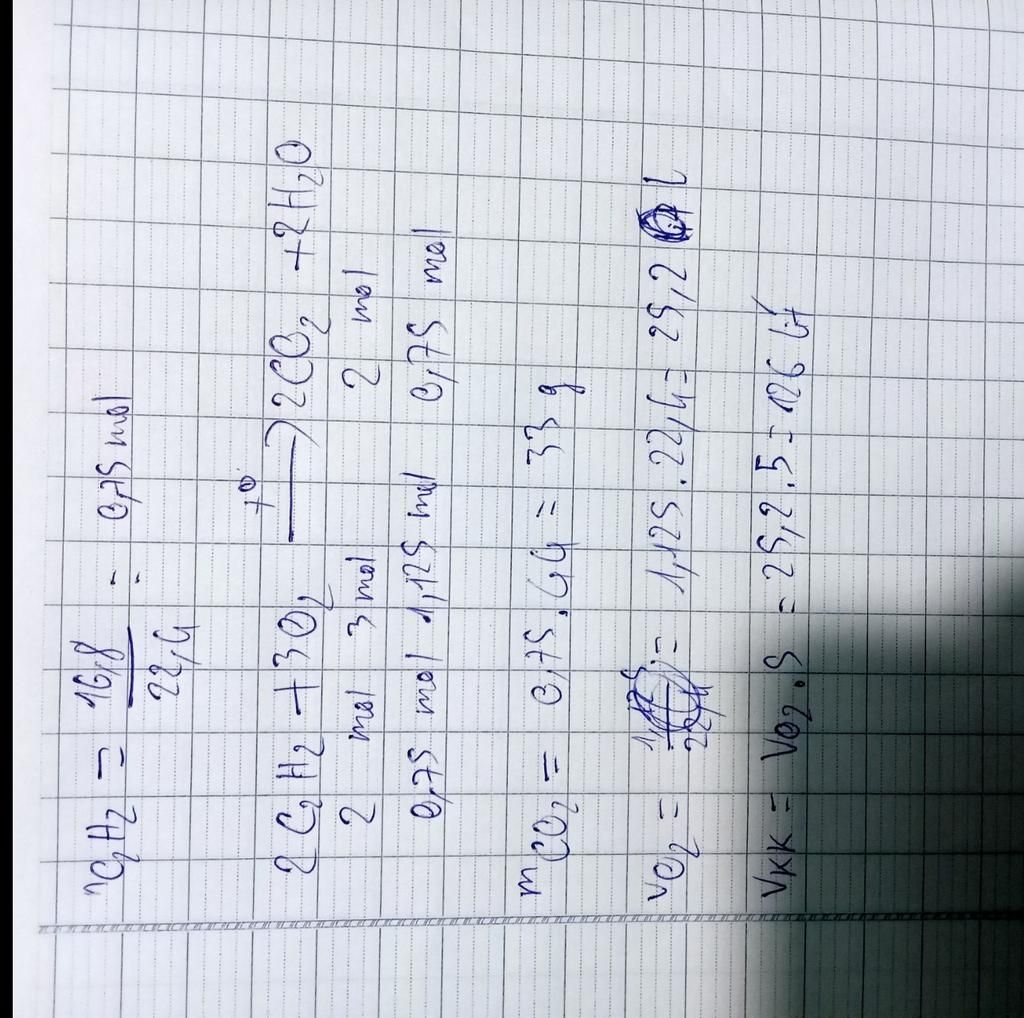 nC2H2 = 16,8 / 22,4 = 0,75 mol
2C2H2 + 3O2 → 2CO2 + 2H2O
2 mol 3 mol 2 mol
0,75 mol 1,125 mol 0,75 mol
mCO2 = 0,75.44 = 33 g
VO2 = 1,125.22,4 = 25,2 l
VKK = VO2.5 = 25,2.5 = 126 lít